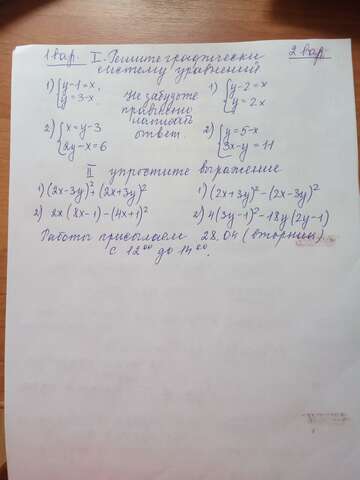 1 вар. I. Решите графически 2 вар
систему уравнений
1) {y-1=x, 1) {y-2=x
{y=3-x. {y=2x
Не забудьте
правильно
написать
ответ.
2) {x=y-3 2) {y=5-x
{2y-x=6 {3x-y=11
II упростите выражение
1) (2x-3y)²+(2x+3y)² 1) (2x+3y)²-(2x-3y)²
2) 2x(8x-1)-(4x+1)² 2) 4(3y-1)²-18y(2y-1)
Работы присылаем 28.04 (вторник)
с 12⁰⁰ до 14⁰⁰.